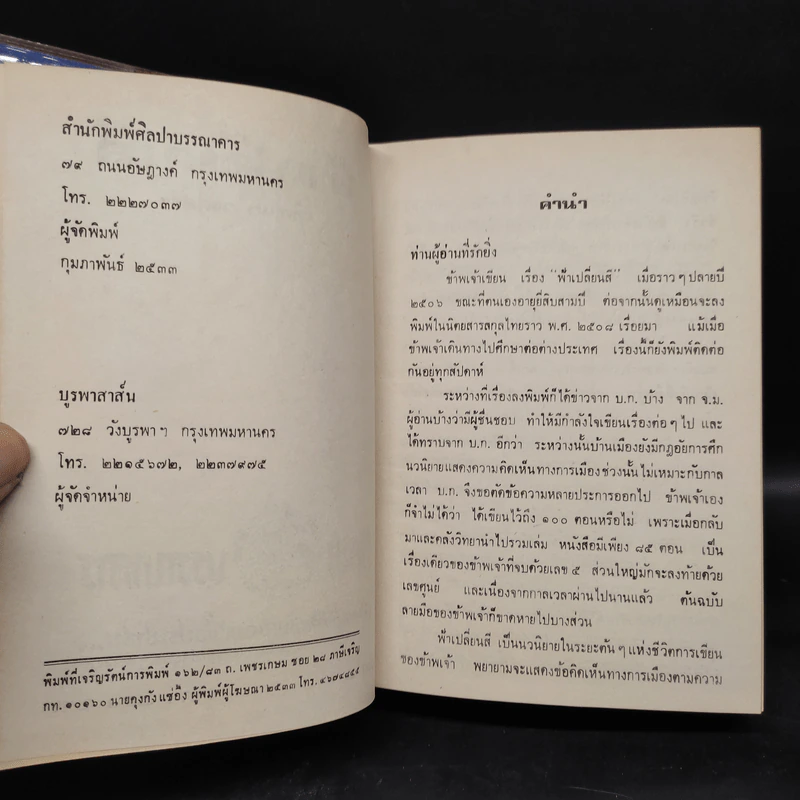 สำนักพิมพ์ศิลปาบรรณาคาร
๗๙ ถนนอัษฎางค์ กรุงเทพมหานคร
โทร. ๒๒๒๗๐๓๗
ผู้จัดพิมพ์
กุมภาพันธ์ ๒๕๓๓
บูรพาสาส์น
๗๒๘ วังบูรพา ฯ กรุงเทพมหานคร
โทร. ๒๒๑๕๖๗๒, ๒๒๓๗๙๗๕
ผู้จัดจำหน่าย
พิมพ์ที่เจริญรัตน์การพิมพ์ ๑๖๒/๘๓ ถ. เพชรเกษม ซอย ๒๘ ภาษีเจริญ
กท. ๑๐๑๖๐ นายคุงกัง แซ่อึ้ง ผู้พิมพ์ผู้โฆษณา ๒๕๓๓ โทร. ๔๖๗๔๘๕๕
คำนำ
ท่านผู้อ่านที่รักยิ่ง
ข้าพเจ้าเขียน เรื่อง "ฟ้าเปลี่ยนสี" เมื่อราว ๆ ปลายปี
๒๕๐๖ ขณะที่ตนเองอายุยี่สิบสามปี ต่อจากนั้นดูเหมือนจะลง
พิมพ์ในนิตยสารสกุลไทยราว พ.ศ. ๒๕๐๘ เรื่อยมา แม้เมื่อ
ข้าพเจ้าเดินทางไปศึกษาต่อต่างประเทศ เรื่องนี้ก็ยังพิมพ์ติดต่อ
กันอยู่ทุกสัปดาห์
ระหว่างที่เรื่องลงพิมพ์ก็ได้ข่าวจาก บ.ก. บ้าง จาก จ.ม.
ผู้อ่านบ้างว่ามีผู้ชื่นชอบ ทำให้มีกำลังใจเขียนเรื่องต่อ ๆ ไป และ
ได้ทราบจาก บ.ก. อีกว่า ระหว่างนั้นบ้านเมืองยังมีกฎอัยการศึก
นวนิยายแสดงความคิดเห็นทางการเมืองช่วงนั้นไม่เหมาะกับกาล
เวลา บ.ก. จึงขอตัดข้อความหลายประการออกไป ข้าพเจ้าเอง
ก็จำไม่ได้ว่า ได้เขียนไว้ถึง ๑๐๐ ตอนหรือไม่ เพราะเมื่อกลับ
มาและคลังวิทยานำไปรวมเล่ม หนังสือมีเพียง ๘๕ ตอน เป็น
เรื่องเดียวของข้าพเจ้าที่จบด้วยเลข ๕ ส่วนใหญ่มักจะลงท้ายด้วย
เลขศูนย์ และเนื่องจากกาลเวลาผ่านไปนานแล้ว ต้นฉบับ
ลายมือของข้าพเจ้าก็ขาดหายไปบางส่วน
ฟ้าเปลี่ยนสี เป็นนวนิยายในระยะต้น ๆ แห่งชีวิตการเขียน
ของข้าพเจ้า พยายามจะแสดงข้อคิดเห็นทางการเมืองตามความ